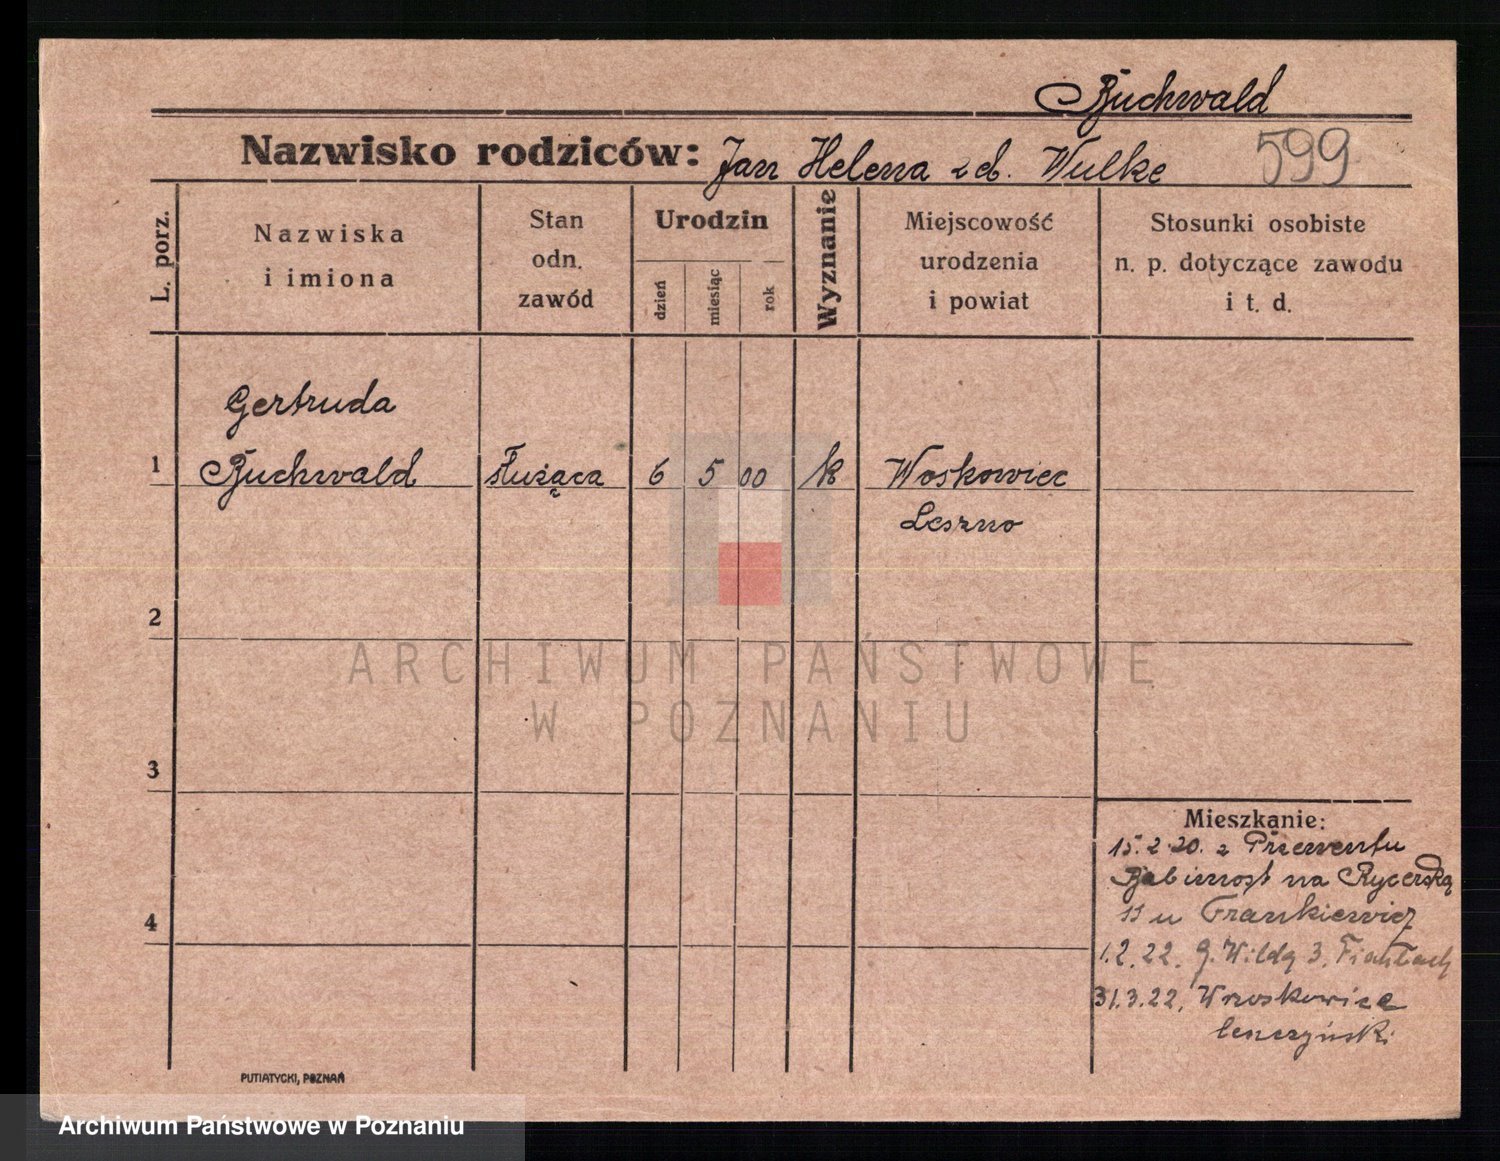 Buchwald
Nazwisko rodziców: Jan Helena zd. Wulke 599
L. porz.
Nazwiska
i imiona
Stan
odn.
zawód
Urodzin
dzień
miesiąc
rok
Wyznanie
Miejscowość
urodzenia
i powiat
Stosunki osobiste
n. p. dotyczące zawodu
i t. d.
Gertruda
1 Buchwald służąca 6 5 00 k Woskowiec
Leszno
2
ARCHIWUM PAŃSTWOWE
W POZNANIU
3
Mieszkanie:
15.2.20. z Przementu
Babimost na Rycerską
11 u Frankiewicz
4
1.2.22. G. Wildą 3,
31.3.22, Wroskowice
PUTIATYCKI, POZNAŃ
Archiwum Państwowe w Poznaniu